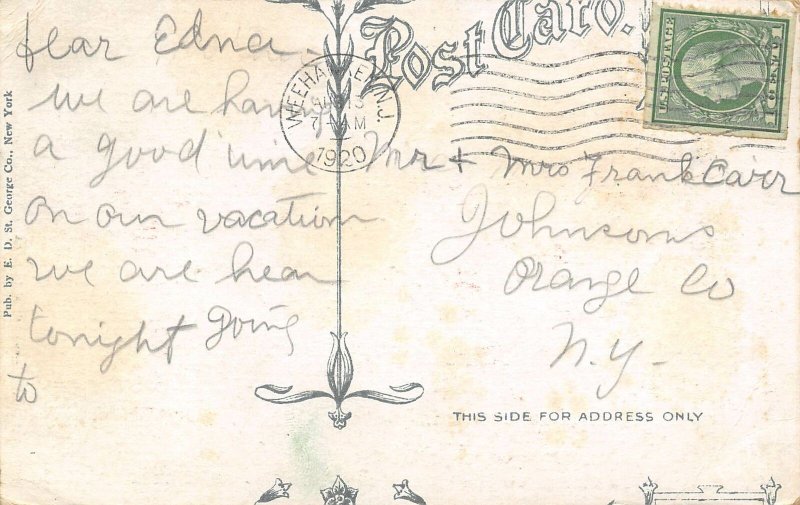 Post Card.
U.S. POSTAGE
1 CENT 1
WEEHAWKEN, N.J.
AUG 13
7 AM
1920
Dear Edna
we are having
a good time
on our vacation
we are hear
tonight going
to
Mr + Mrs Frank Carr
Johnsons
Orange Co
N.Y-
THIS SIDE FOR ADDRESS ONLY
Pub. by E. D. St. George Co., New York